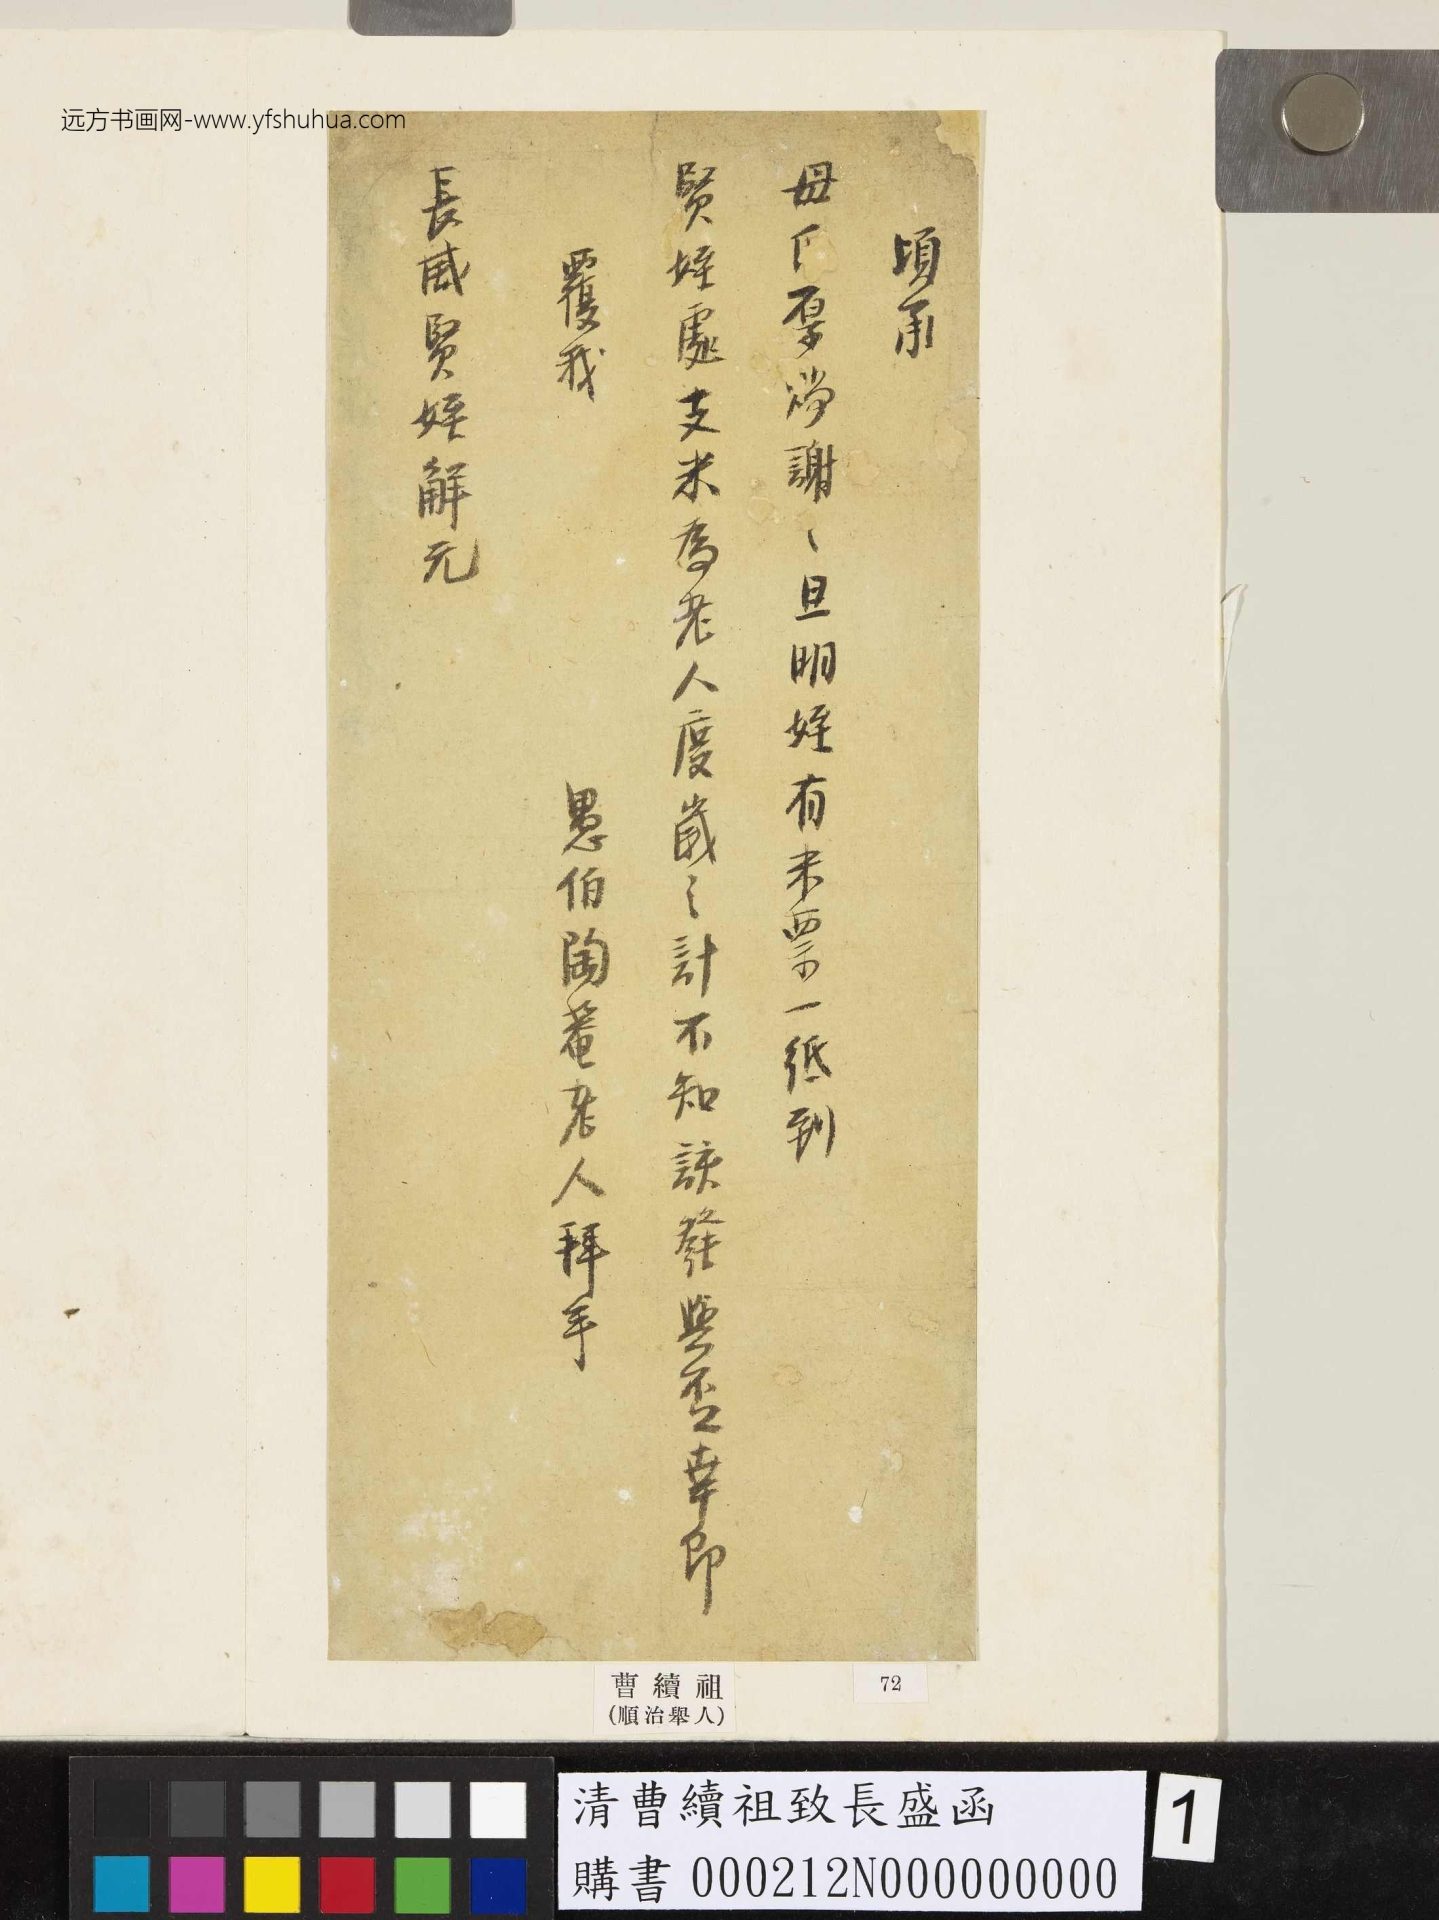 远方书画网-www.yfshuhua.com
頃承
毋厚謝〻旦明姪有米票一紙到
賢姪處支米為老人度歲之計不知該發與否幸即
覆我
愚伯陶菴老人拜手
長咸賢姪解元
曹續祖
(順治舉人)
72
清曹續祖致長盛函
購書 000212N000000000
1